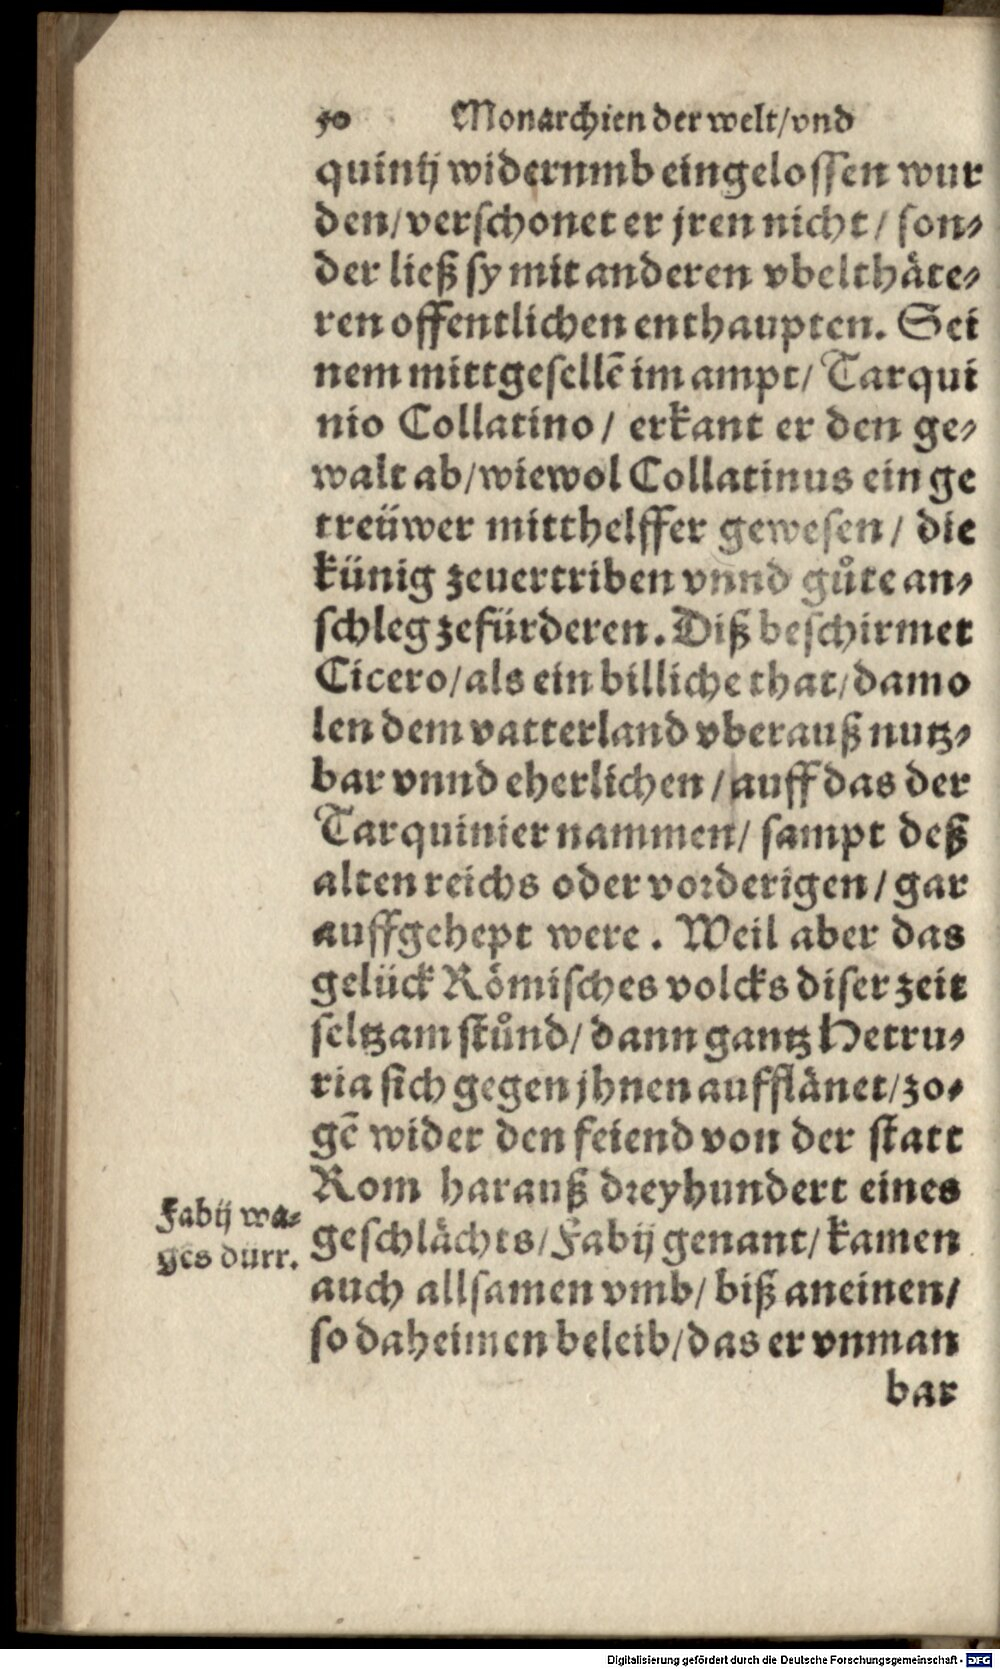 50 Monarchien der welt/vnd
quinij widernmb eingelossen wur
den/verschonet er jren nicht/ son⸗
der ließ sy mit anderen vbelthäte⸗
ren offentlichen enthaupten. Sei
nem mittgesellē im ampt/ Tarqui
nio Collatino/ erkant er den ge⸗
walt ab/wiewol Collatinus ein ge
treüwer mitthelffer gewesen/ die
künig zeuertriben vnnd gůte an⸗
schleg zefürderen. Diß beschirmet
Cicero/als ein billiche that/damo
len dem vatterland vberauß nutz⸗
bar vnnd eherlichen/auff das der
Tarquinier nammen/ sampt deß
alten reichs oder vorderigen/gar
auffgehept were. Weil aber das
gelück Römisches volcks diser zeit
seltzam stůnd/dann gantz Hetru⸗
ria sich gegen jhnen aufflänet/zo⸗
gē wider den feiend von der statt
Rom harauß dreyhundert eines
geschlächts/Fabij genant/kamen
auch allsamen vmb/ biß an einen/
so daheimen beleib/das er vnman
bar
Fabij wa⸗
gēs dürr.
Digitalisierung gefördert durch die Deutsche Forschungsgemeinschaft - DFG